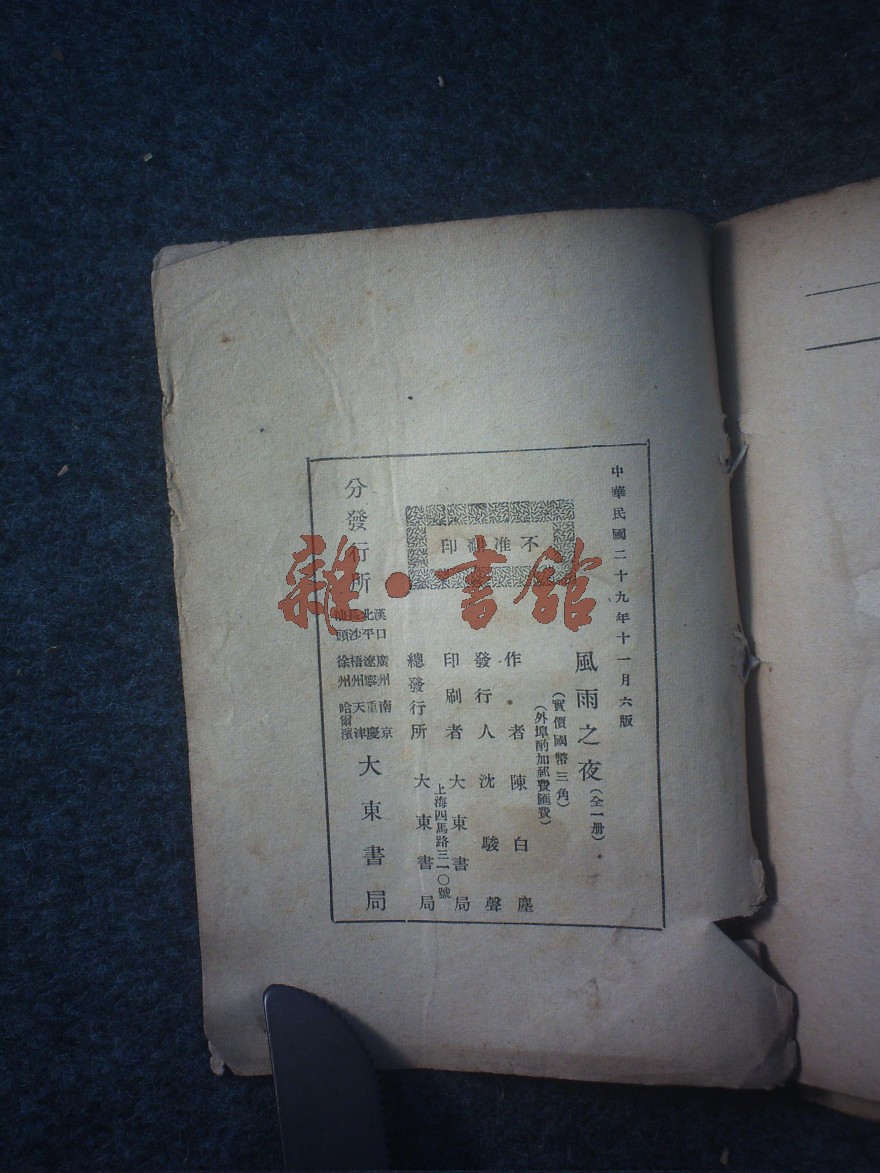 中華民國二十九年十一月六版
風雨之夜（全一册）
（實價國幣三角）
（外埠酌加郵費匯費）
不准翻印
作者 陳白塵
發行人 沈駿聲
印刷者 大東書局
上海四馬路三一〇號
總發行所 大東書局
分發行所
漢口 廣州 南京
北平 遼寧 重慶
長沙 梧州 天津
汕頭 徐州 哈爾濱
大東書局
雜·書館